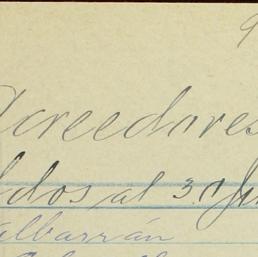 9
Acreedores
ldos al 30 Ju
Albarrán